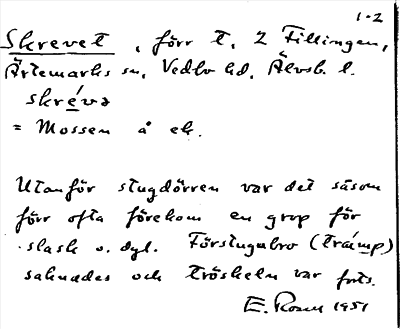 1-2
Skrevet, förr t. 2 Fillingen,
Ärtemarks sn, Vedbo hd, Älvsb. l.
skré̱və
= Mossen å ek.
Utanför stugdörren var det såsom
förr ofta förekom en grop för
slask o. dyl. Förstugubro (trámp)
saknades och tröskeln var forts.
E. Rosen 1951